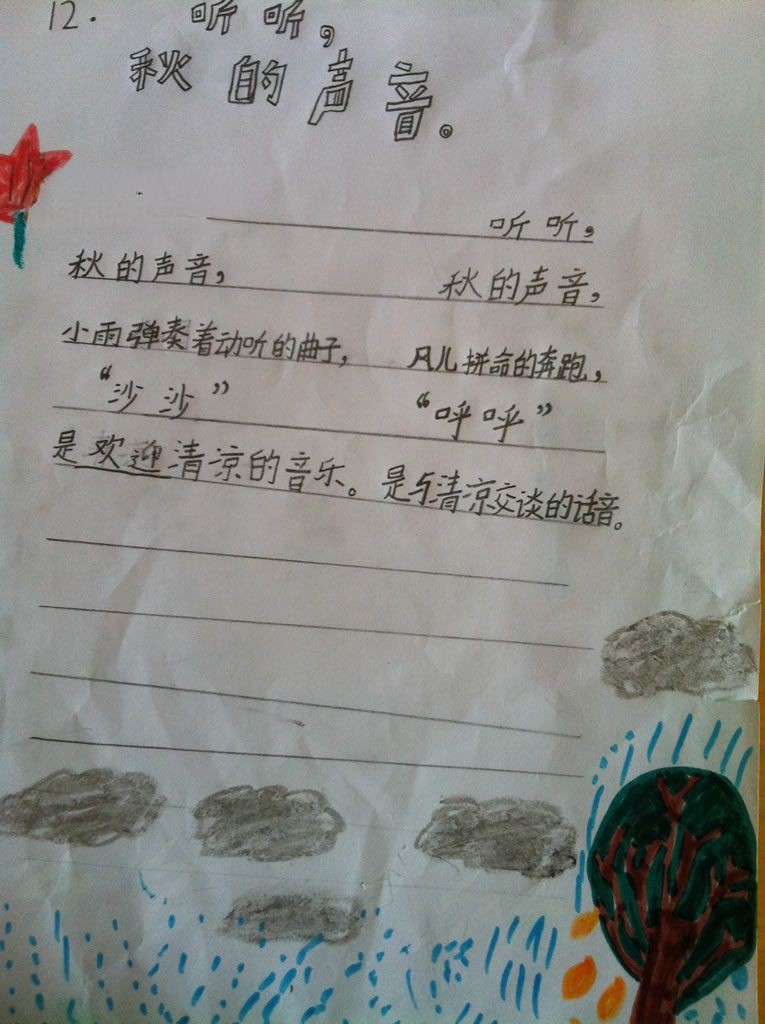 12.
听听,
秋的声音。
秋的声音,
小雨弹奏着动听的曲子,
“沙沙”
是欢迎清凉的音乐。
听听,
秋的声音,
风儿拼命的奔跑,
“呼呼”
是与清凉交谈的话音。